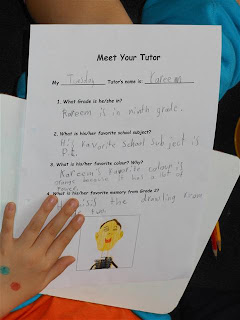 Meet Your Tutor
My Tuesday Tutor's name is Kareem
1. What Grade is he/she in?
Kareem is in ninth grade.
2. What is his/her favorite school subject?
His favorite school subject is
P.E.
3. What is his/her favorite colour? Why?
Kareem's favorite colour is
orange because it has a lot of
4. What is his/her favorite memory from Grade 2?
is the drawing from